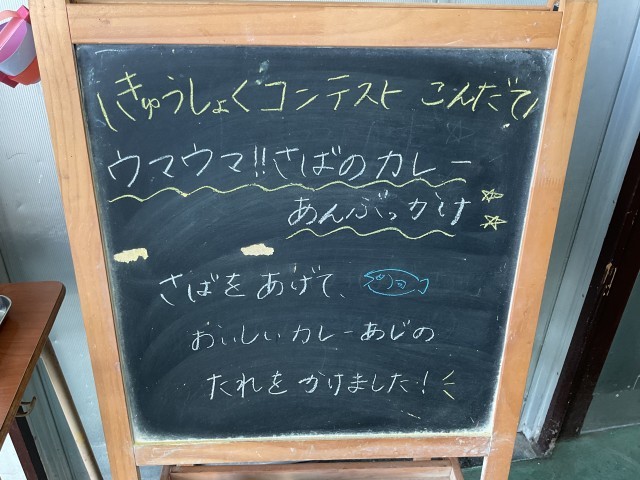 きゅうしょくコンテスト こんだて
ウマウマ!!さばのカレー
あんぶっかけ
さばをあげて、
おいしいカレーあじの
たれをかけました!